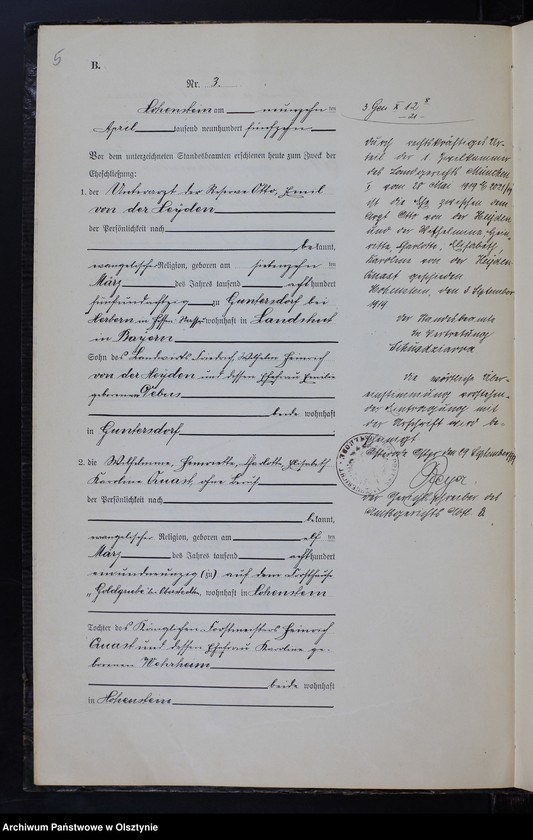 5
B.
Nr. 3.
Hohenstein am neunzehn ten
April tausend neunhundert fünfzehn
Vor dem unterzeichneten Standesbeamten erschienen heute zum Zweck der
Eheschließung:
1. der Unterarzt der Reserve Otto, Emil
von der Heyden
der Persönlichkeit nach
bekannt,
evangelischer Religion, geboren am siebenzehn ten
März des Jahres tausend achthundert
zu Guntersdorf bei
Herborn in Hessen Nassau wohnhaft in Landshut
in Bayern
Sohn des Landwirts Friedrich Wilhelm Heinrich
von der Heyden und dessen Ehefrau Emilie
geborenen
beide wohnhaft
in Guntersdorf
2. die Wilhelmine, Henriette, Charlotte, Elisabeth
Karoline Quast, ohne Beruf
der Persönlichkeit nach
bekannt,
evangelischer Religion, geboren am elf ten
März des Jahres tausend achthundert
einundneunzig (zu) auf dem Forsthause
Goldgrube wohnhaft in Hohenstein
Tochter des Königlichen Forstmeisters Heinrich
Quast und dessen Ehefrau Karoline ge-
borenen Wehrheim
beide wohnhaft
in Hohenstein
3 Gen X 12
durch rechtskräftiges Ur-
teil der 1. Zivilkammer
des Landgerichts München
I vom 28. Mai 1919
ist die Ehe zwischen dem
Arzt Otto von der Heyden
und der Wilhelmina, Hen-
riette, Charlotte, Elisabeth,
Karoline von der Heyden
Quast geschieden
Hohenstein, den 5. September
1919.
Der Standesbeamte
In Vertretung
Die wörtliche Über-
einstimmung vorstehen-
der Eintragung mit
der Urschrift wird be-
scheinigt.
Osterode Ostpr. den 19 September 1919
der Gerichtsschreiber des
Amtsgerichts
Archiwum Państwowe w Olsztynie